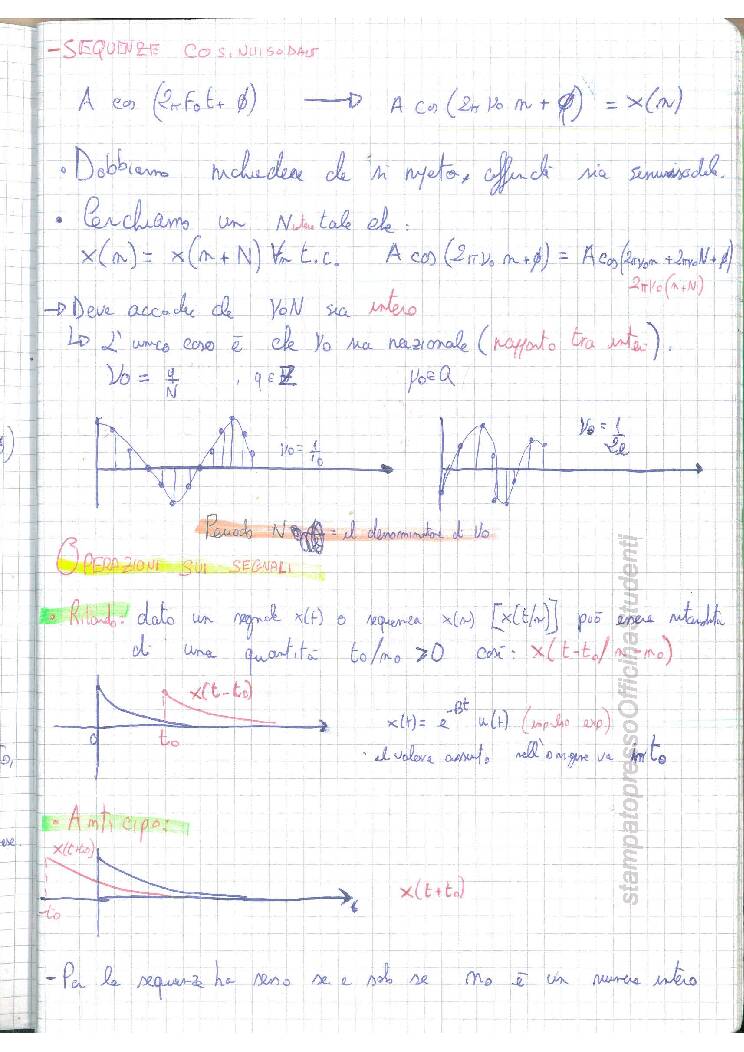 - SEQUENZE COSINUISODALI
A cos (2π F₀ t + ϕ) → A cos (2π ν₀ n + ϕ) = x(n)
• Dobbiamo richiedere che si ripeta, affinché sia sinusoidale.
• Cerchiamo un N intero tale che:
x(n) = x(n + N) ∀n t.c. A cos (2π ν₀ n + ϕ) = A cos (2π ν₀ n + 2π ν₀ N + ϕ)
2π ν₀ (n+N)
→ Deve accadere che ν₀N sia intero
↳ L'unico caso è che ν₀ sia razionale (rapporto tra interi).
ν₀ = q/N , q ∈ Z ν₀ = Q
ν₀ = 1/10
Periodo N = il denominatore di ν₀
OPERAZIONI SUI SEGNALI
• Ritardo: dato un segnale x(t) o sequenza x(n) [x(t/n)] può essere ritardata
di una quantità t₀/n₀ ≥ 0 così: x(t-t₀/n-n₀)
x(t-t₀)
0 t₀
x(t) = e^-βt u(t) (impulso exp)
• il valore assunto nell'origine va in t₀
• Anticipo:
x(t+t₀)
-t₀ t
x(t+t₀)
- Per le sequenze ha senso se e solo se n₀ è un numero intero
stampatopressoOfficinaStudenti